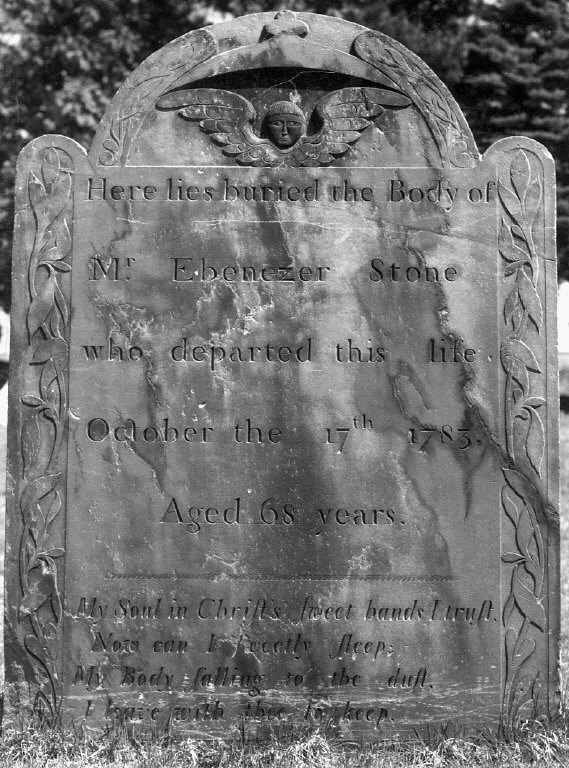 Here lies buried the Body of
Mr. Ebenezer Stone
who departed this life
October the 17th 1783.
Aged 68 years.
My Soul in Chriſt's ſweet hands I truſt,
Now can I ſweetly ſleep;
My Body falling to the duſt,
I leave with thee to keep.